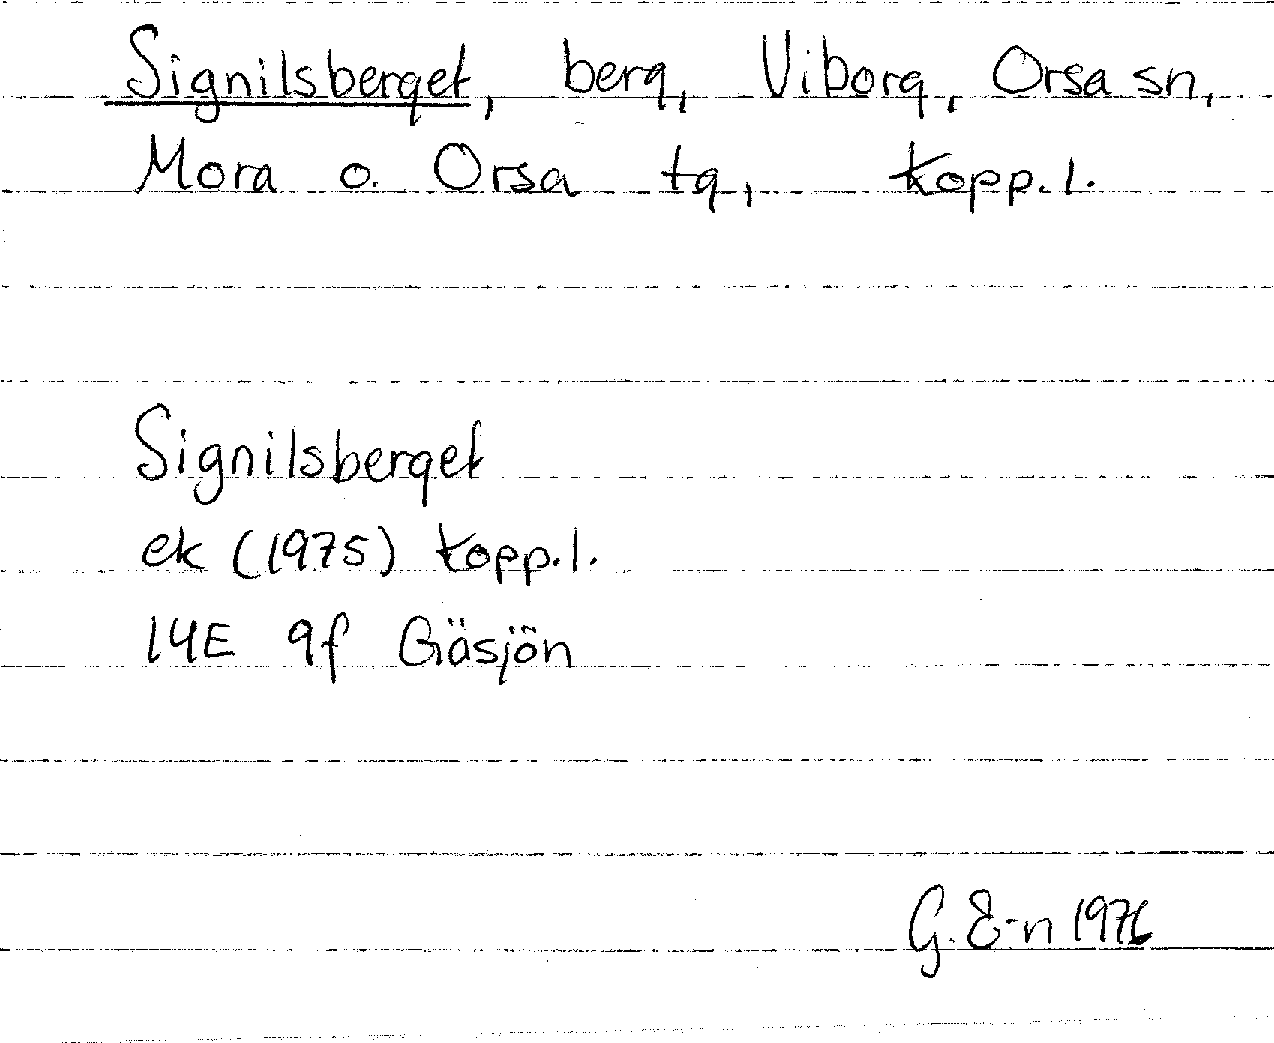 Signilsberget, berg, Viborg, Orsa sn,
Mora o. Orsa tg, Kopp. l.
Signilsberget
ek (1975) Kopp. l.
14E 9f Gäsjön
G. E-n 1976